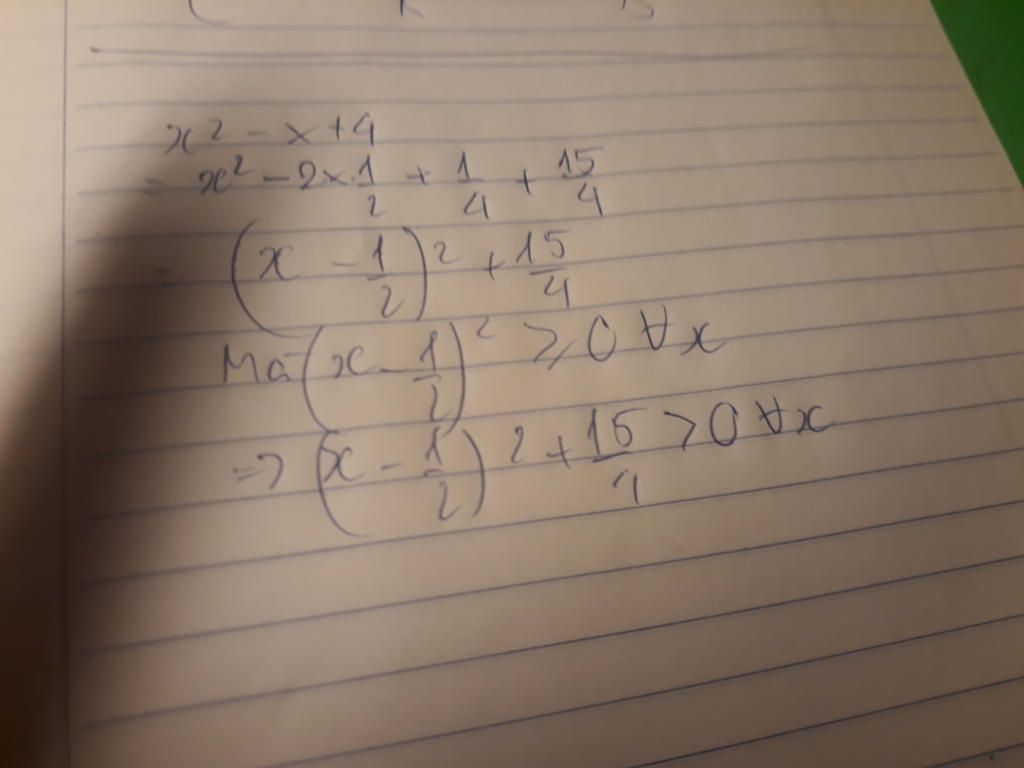 x² - x + 4
= x² - 2x 1/2 + 1/4 + 15/4
= (x - 1/2)² + 15/4
Mà (x - 1/2)² ≥ 0 ∀x
=> (x - 1/2)² + 15/4 > 0 ∀x